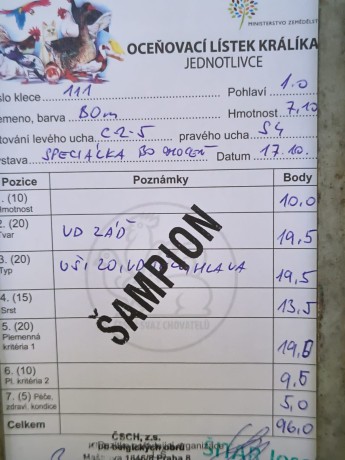 MINISTERSTVO ZEMĚDĚLST
OCEŇOVACÍ LÍSTEK KRÁLÍKA
JEDNOTLIVCE
slo klece 111 Pohlaví 1.0
emeno, barva BOm Hmotnost 7,10
tování levého ucha C2-5 pravého ucha S4
ýstava SPECIÁLKA BO Datum 17.10.
Pozice Poznámky Body
1. (10) Hmotnost 10,0
2. (20) Tvar VD ZÁĎ 19,5
3. (20) Typ UŠI 20, HLAVA 19,5
4. (15) Srst 13,5
5. (20) Plemenná kritéria 1 19,5
6. (10) Pl. kritéria 2 9,5
7. (5) Péče, zdraví, kondice 5,0
Celkem 96,0
ŠAMPION
SVAZ CHOVATELŮ
ČSCH, z.s.
belgických obrů
1646/8 Praha 8